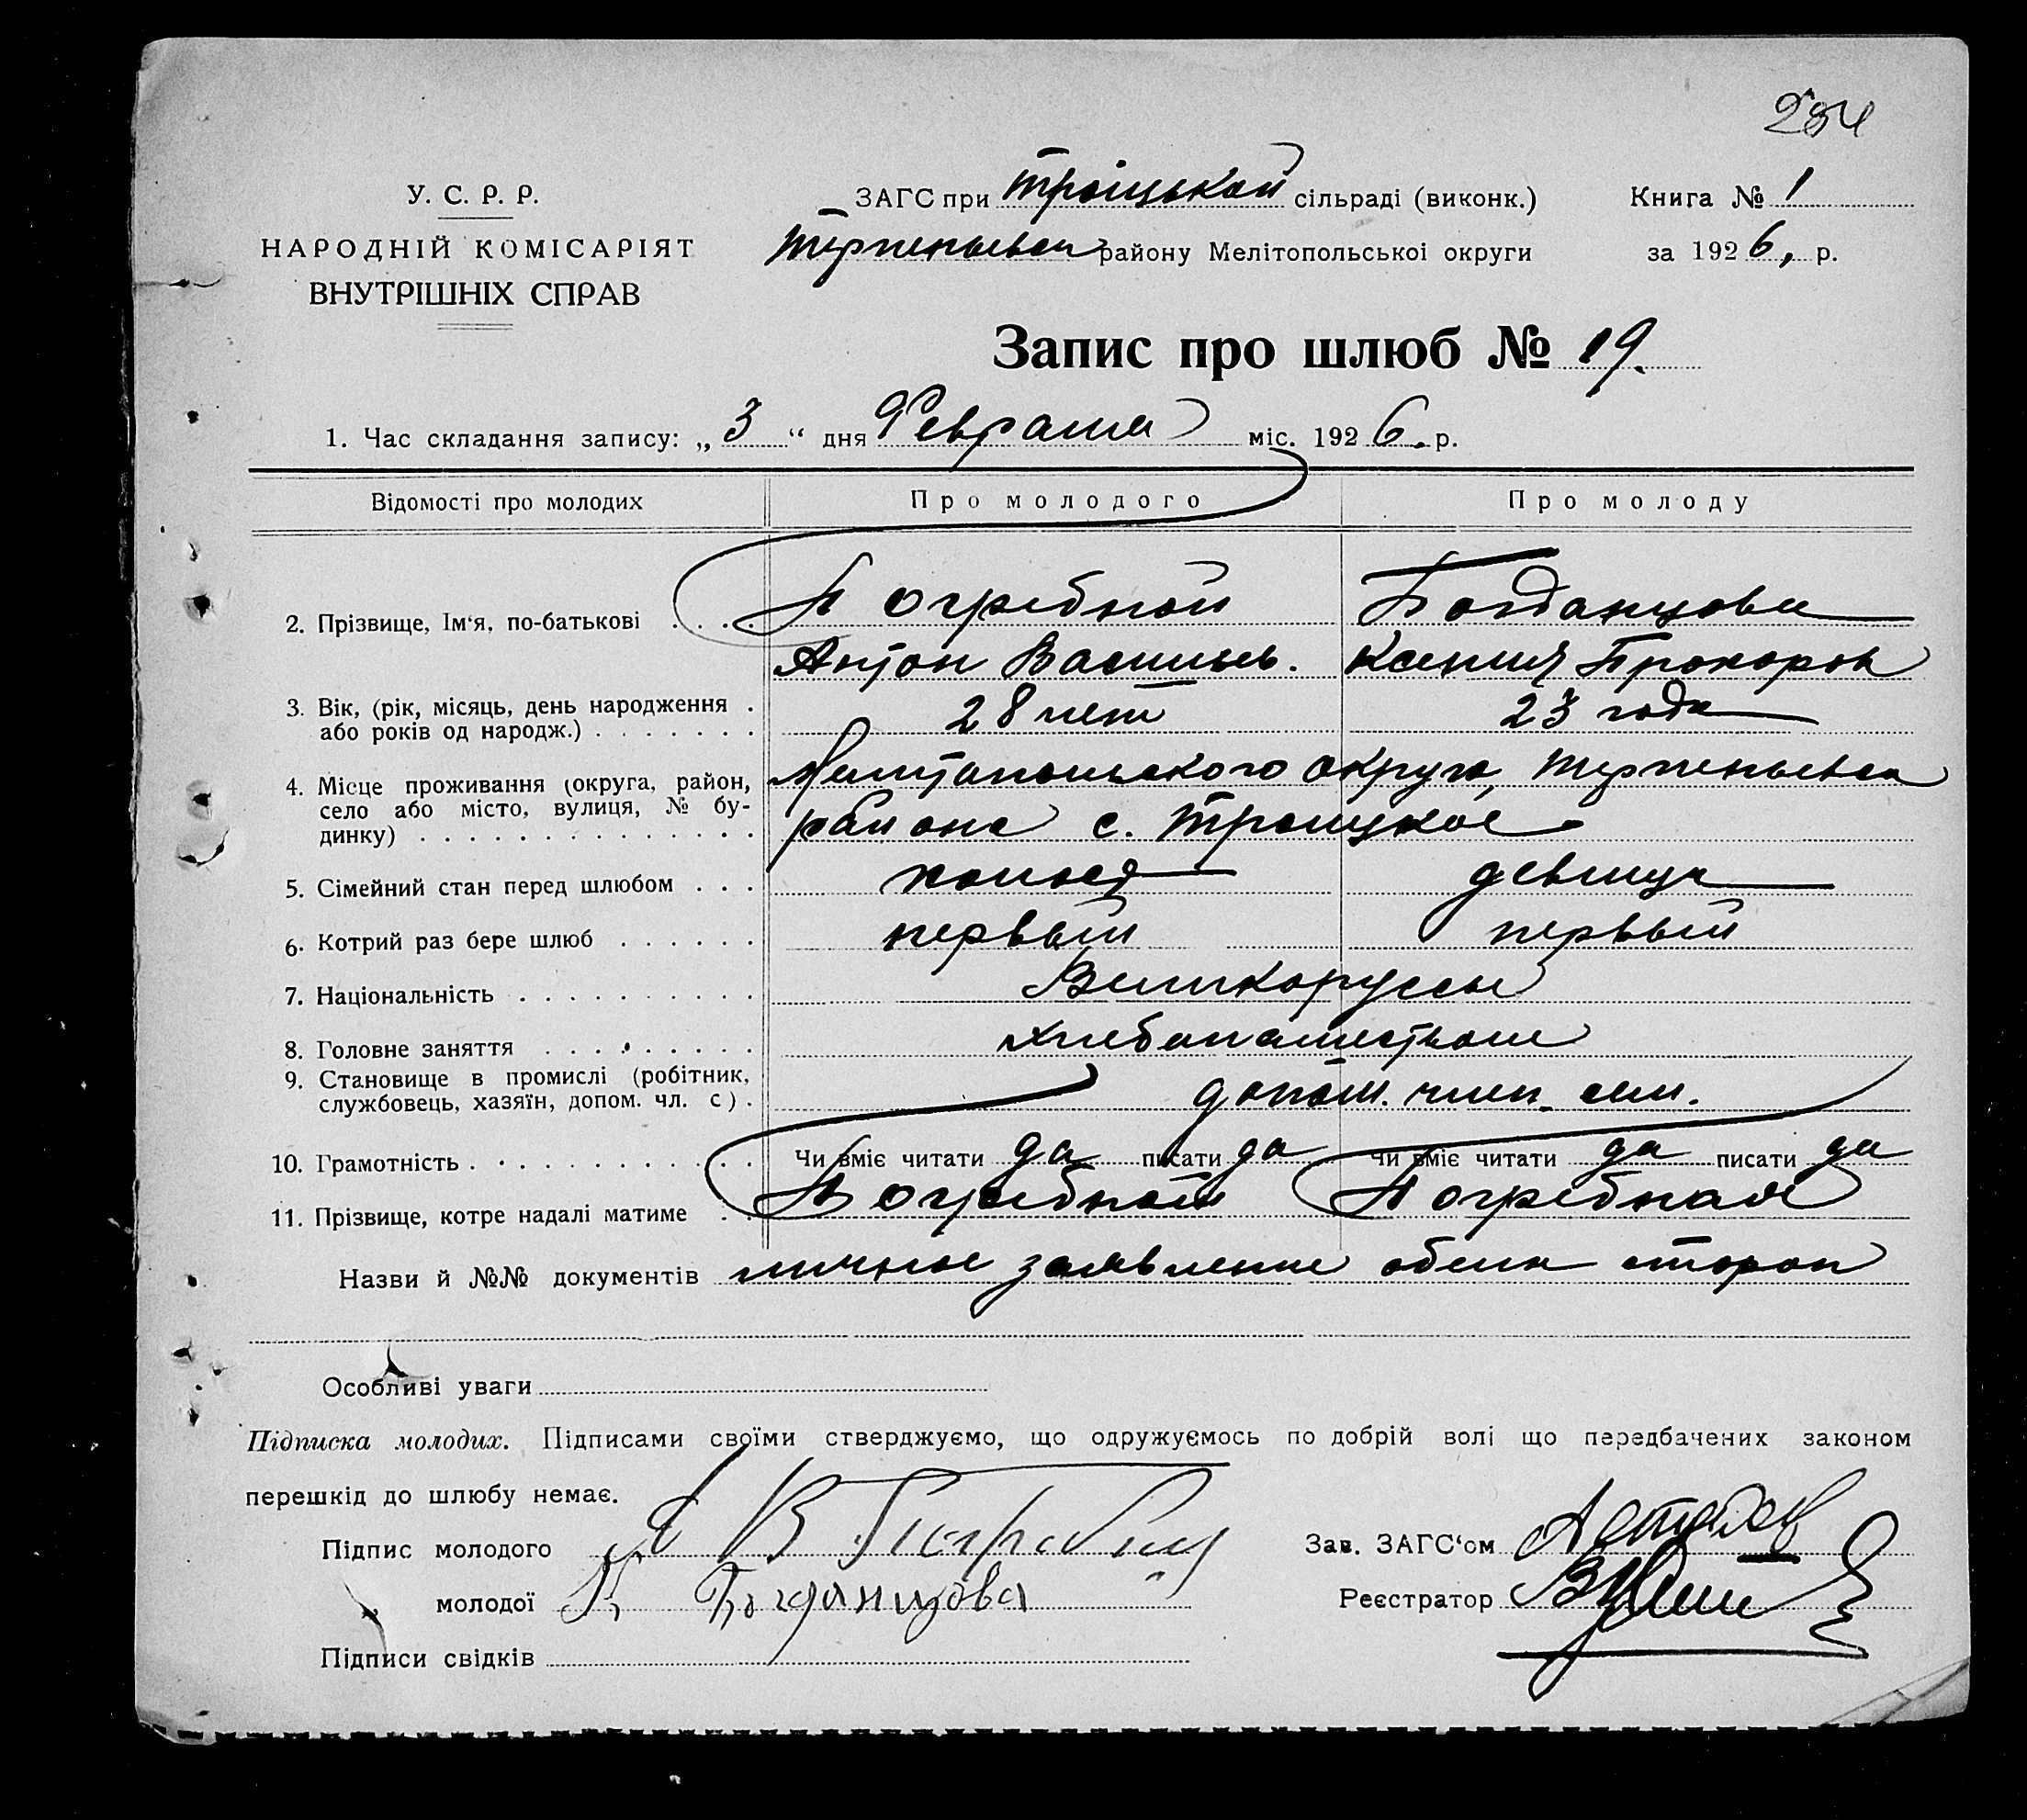 234
У. С. Р. Р.
НАРОДНІЙ КОМІСАРІЯТ
ВНУТРІШНІХ СПРАВ
ЗАГС при Троіцькой сільраді (виконк.)
Терпеньевск району Мелітопольськоі округи
Книга № 1
за 1926, р.
Запис про шлюб № 19.
1. Час складання запису: „ 3 “ дня Февраля міс. 1926. р.
Відомості про молодих Про молодого Про молоду
2. Прізвище, Ім‘я, по-батькові . . . . Погребной Богданцова
Антон Васильев. Ксения Прохоров
3. Вік, (рік, місяць, день народження .
або років од народж.) . . . . . . . 28 лет 23 года
4. Місце проживання (округа, район, Мелитопольского округа, Терпеньевск
село або місто, вулиця, № бу- района с. Троицкое
динку) . . . . . . . . . . . . . .
5. Сімейний стан перед шлюбом . . . холост девица
6. Котрий раз бере шлюб . . . . . . первый первый
7. Національність . . . . . . . . . . Великоруссы
8. Головне заняття . . . . . . . . . хлебопашеством
9. Становище в промислі (робітник,
службовець, хазяїн, допом. чл. с) . допом. член. сем.
10. Грамотність . . . . . . . . . . . Чи вміє читати да писати да Чи вміє читати да писати да
11. Прізвище, котре надалі матиме . . Погребной Погребная
Назви й №№ документів личное заявление обеих сторон
Особливі уваги
Підписка молодих. Підписами своїми стверджуємо, що одружуємось по добрій волі що передбачених законом
перешкід до шлюбу немає.
Підпис молодого А В Погребной
Зав. ЗАГС‘ом
молодої К Богданцова
Реєстратор
Підписи свідків